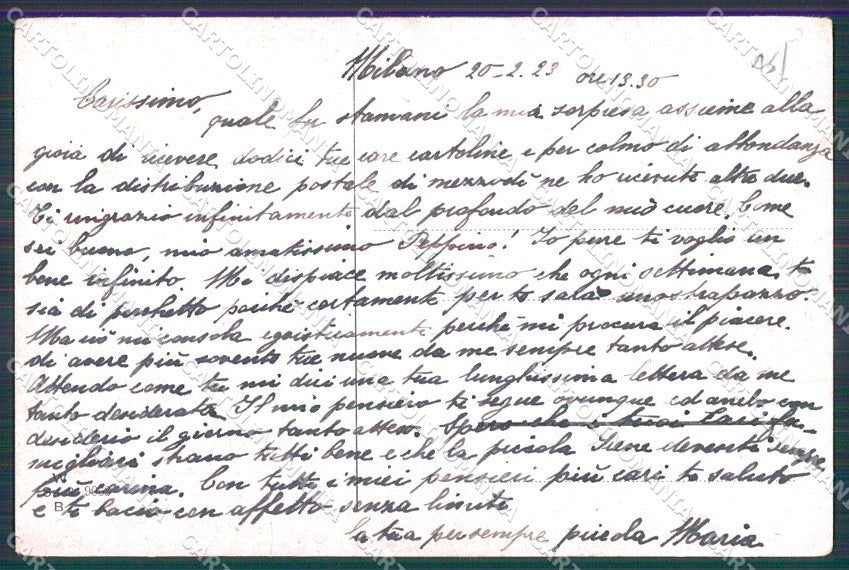 Milano 20-2.23 ore 13.30
Carissimo,
quale fu stamani la mia sorpresa assieme alla
gioia di ricevere dodici tue care cartoline e per colmo di abbondanza
con la distribuzione postale di mezzodì ne ho ricevute altre due.
Ti ringrazio infinitamente dal profondo del mio cuore. Come
sei buono, mio amatissimo Peppino! Io pure ti voglio un
bene infinito. Mi dispiace moltissimo che ogni settimana tu
sia di picchetto perchè certamente per te sarà uno strapazzo.
Ma ciò mi consola egoisticamente perchè mi procura il piacere.
di avere più sovente tue nuove da me sempre tanto attese.
Attendo come tu mi dici una tua lunghissima lettera da me
tanto desiderata. Il mio pensiero ti segue ovunque ed anelo con
desiderio il giorno tanto atteso. Spero che i tuoi cari fa-
migliari stiano tutti bene e che la piccola Irene diventi sempre
più carina. Con tutti i miei pensieri più cari te saluto
e ti bacio con affetto senza limiti
la tua per sempre piccola Maria
CARTOLINOMANIA